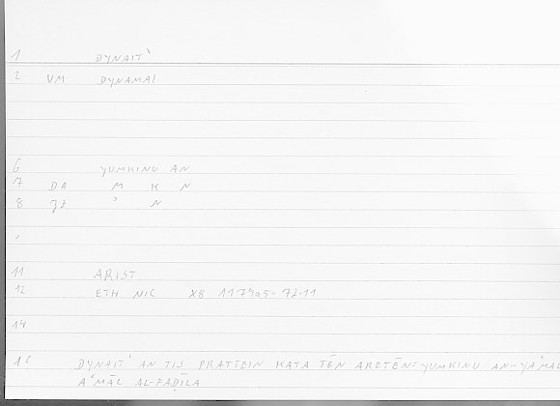 1 DYNAIT'
2 VM DYNAMAI
6 YUMKINU AN
7 DA M K N
8 JZ ' N
11 ARIST
12 ETH NIC X8 1179a5-72.11
14
16 DYNAIT' AN TIS PRATTEIN KATA TĒN ARETĒN: YUMKINU AN-YA'MAL
A'MĀL AL-FAḌĪLA